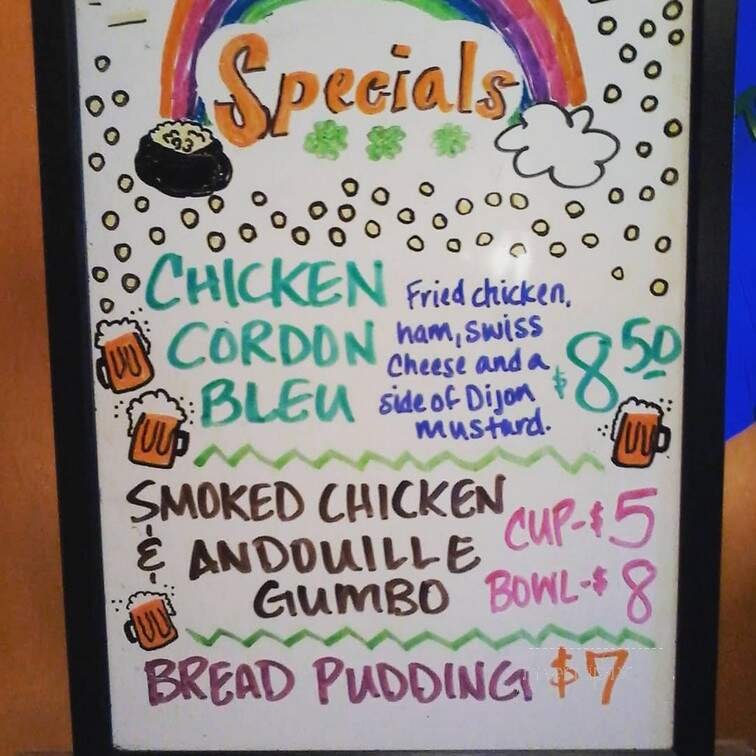 Specials
CHICKEN
CORDON
BLEU
Fried chicken,
ham, swiss
Cheese and a
side of Dijon
mustard.
$8 50
SMOKED CHICKEN
& ANDOUILLE
GUMBO
CUP-$5
BOWL-$8
BREAD PUDDING $7